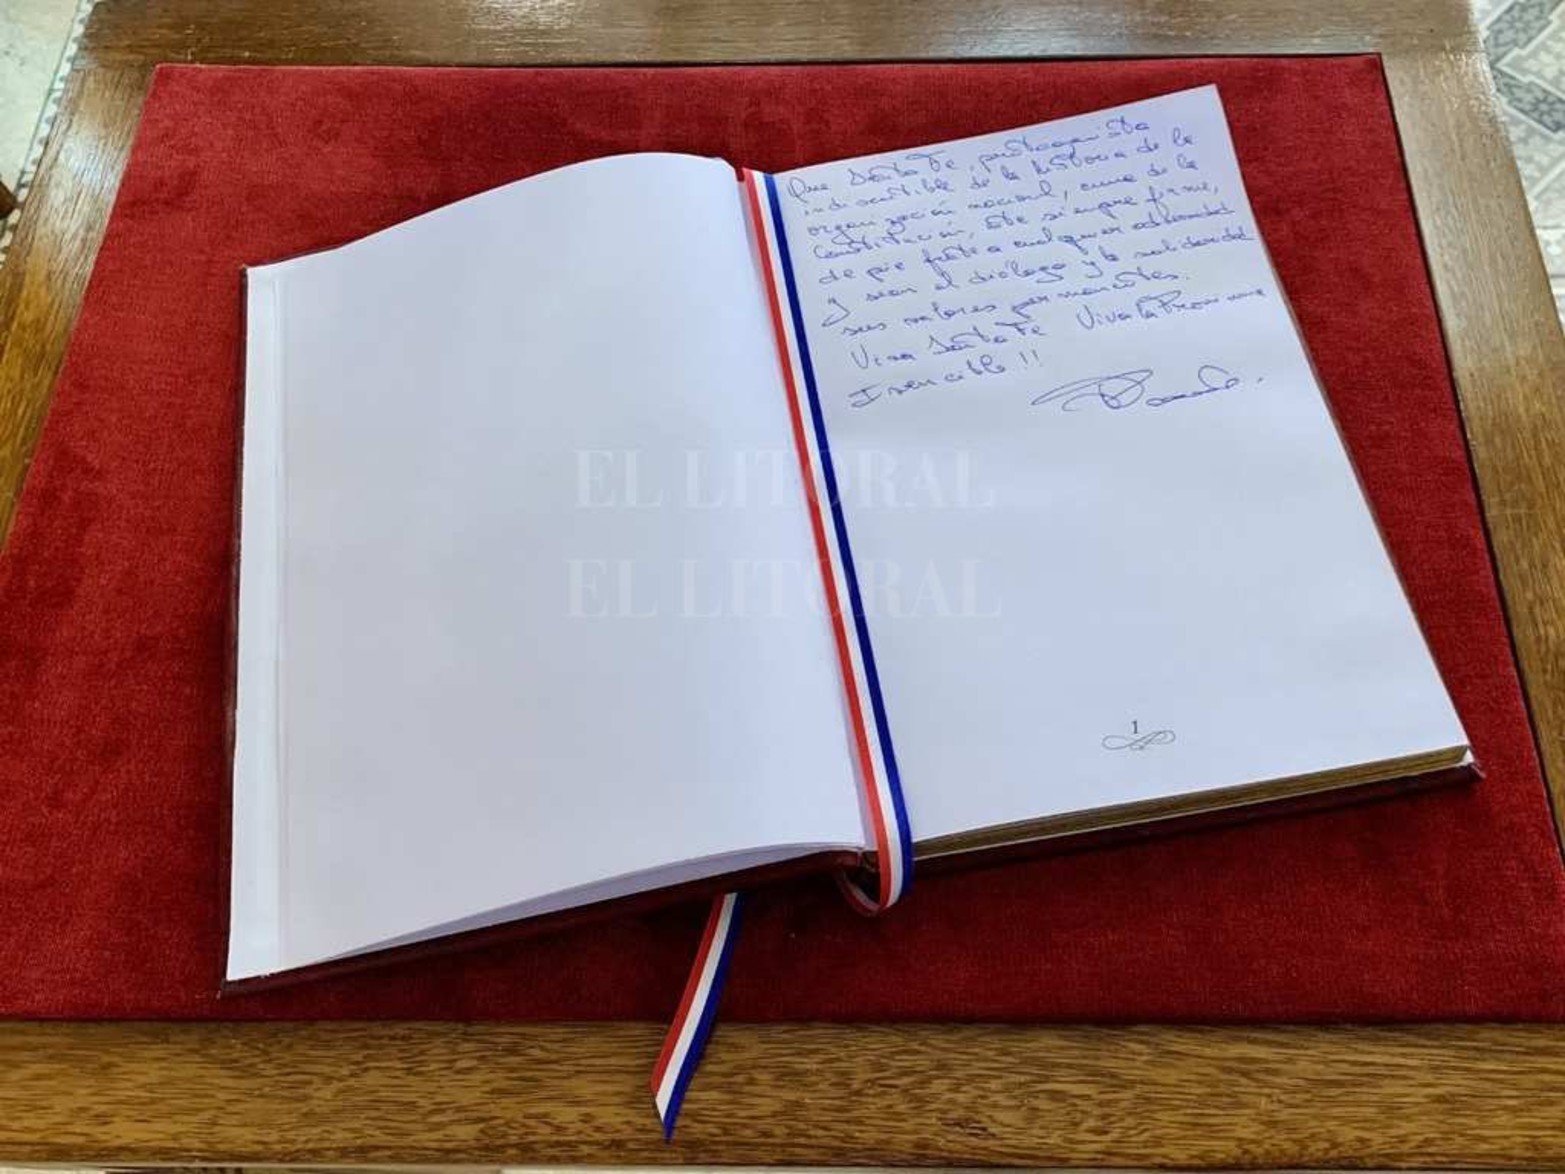 Que Santa Fe, protagonista
indiscutible de la historia de la
organización nacional, cuna de la
Constitución, esté siempre firme,
de pie frente a cualquier adversidad
y sean el diálogo y la solidaridad
sus valores permanentes.
Viva Santa Fe Viva la Provincia
Invencible !!
EL LITORAL
EL LITORAL
1